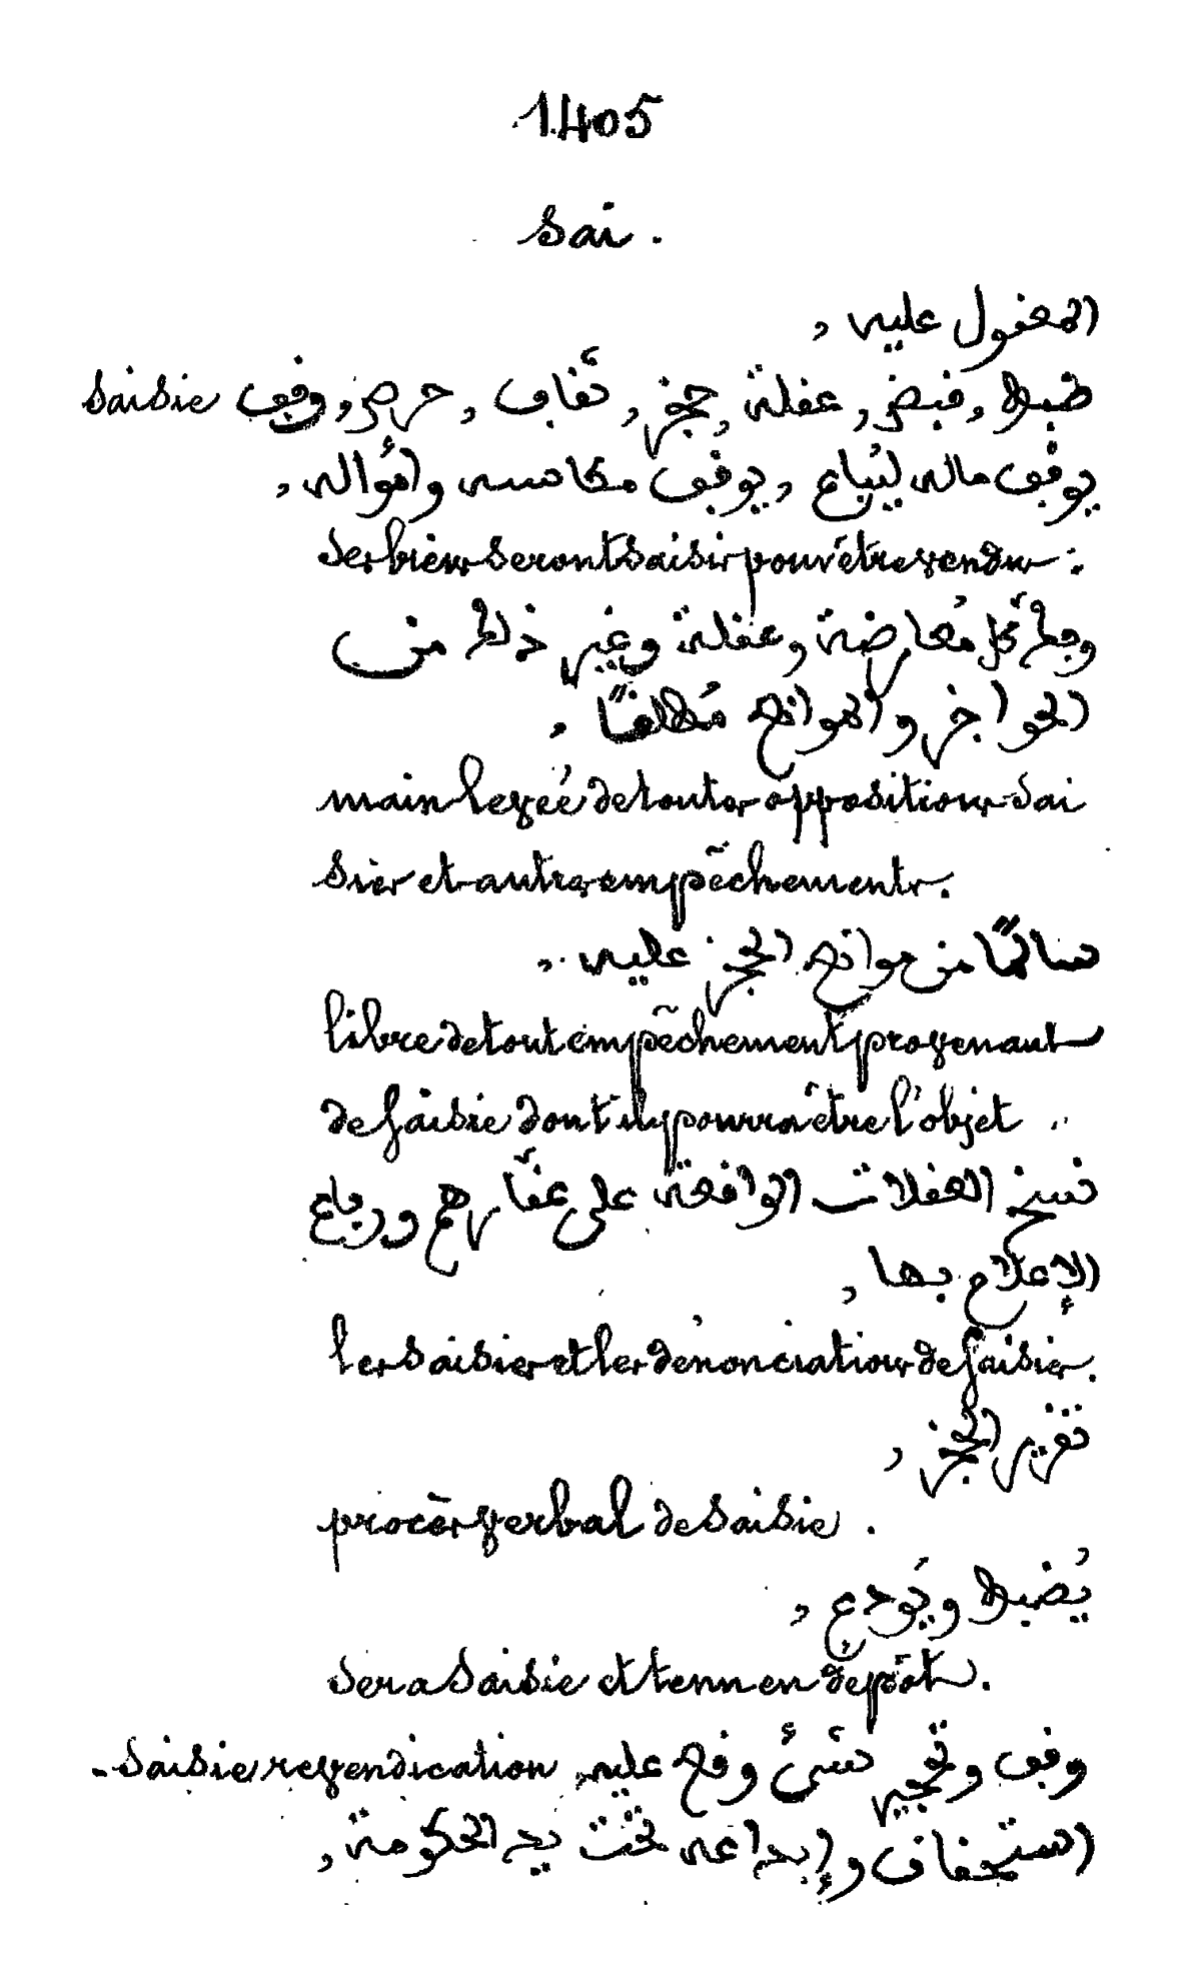 1405
sai.
المعقول عليه ,
saisie ضبط , قبض , عقلة , حجز , ثقاف , حرص , وقف
يوقف ماله ليُباع , يوقف مكاسبه وامواله ,
ses biens seront saisis pour être vendus :
مُعارضة وعقلة وغير ذلك من
الحواجز والموانع مُطلقًا ,
main levée de toutes oppositions sai
sies et autres empêchements.
سالمًا من موانع الحجز عليه .,
libre de tout empêchement provenant
de saisie dont il pourra être l'objet ..
نسخ العقلات الواقعة على عقّارهم ورباع
الإعلام بها ,
les saisies et les dénonciations de saisies.
تقرير الحجز ,
procès verbal de saisie .
يُضبط ويُودع ,
sera saisie et tenu en dépôt.
saisie revendication - وقف وتحجير شىء وقع عليه
استحقاق وإبداعه تحت يد الحكومة ,